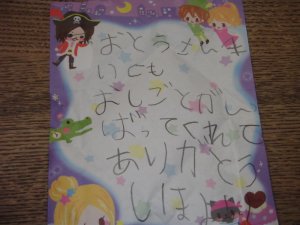 おとうさんいま
いつも
おしごとがん
ばってくれて
ありがとう
しほより